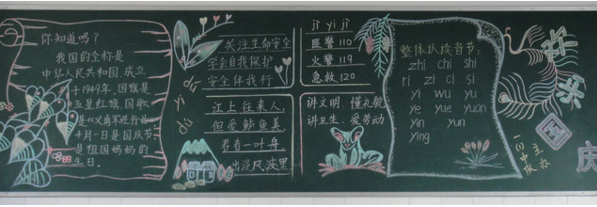 你知道吗?
我国的全称是
中华人民共和国,成立
于1949年,国旗是
五星红旗,国歌
是《义勇军进行曲》
十月一日是国庆节
是祖国妈妈的
生日。
dú yì dú
关注生命安全
学会自我保护
安全伴我行
江上往来人,
但爱鲈鱼美,
君看一叶舟,
出没风波里
jì yi jì
匪警110
火警119
急救120
讲文明、懂礼貌
讲卫生、爱劳动
整体认读音节:
zhi chi shi
ri zi ci si
yi wu yu
ye yue yuan
yin yun
ying
欢乐国庆
一(1)中队
主办